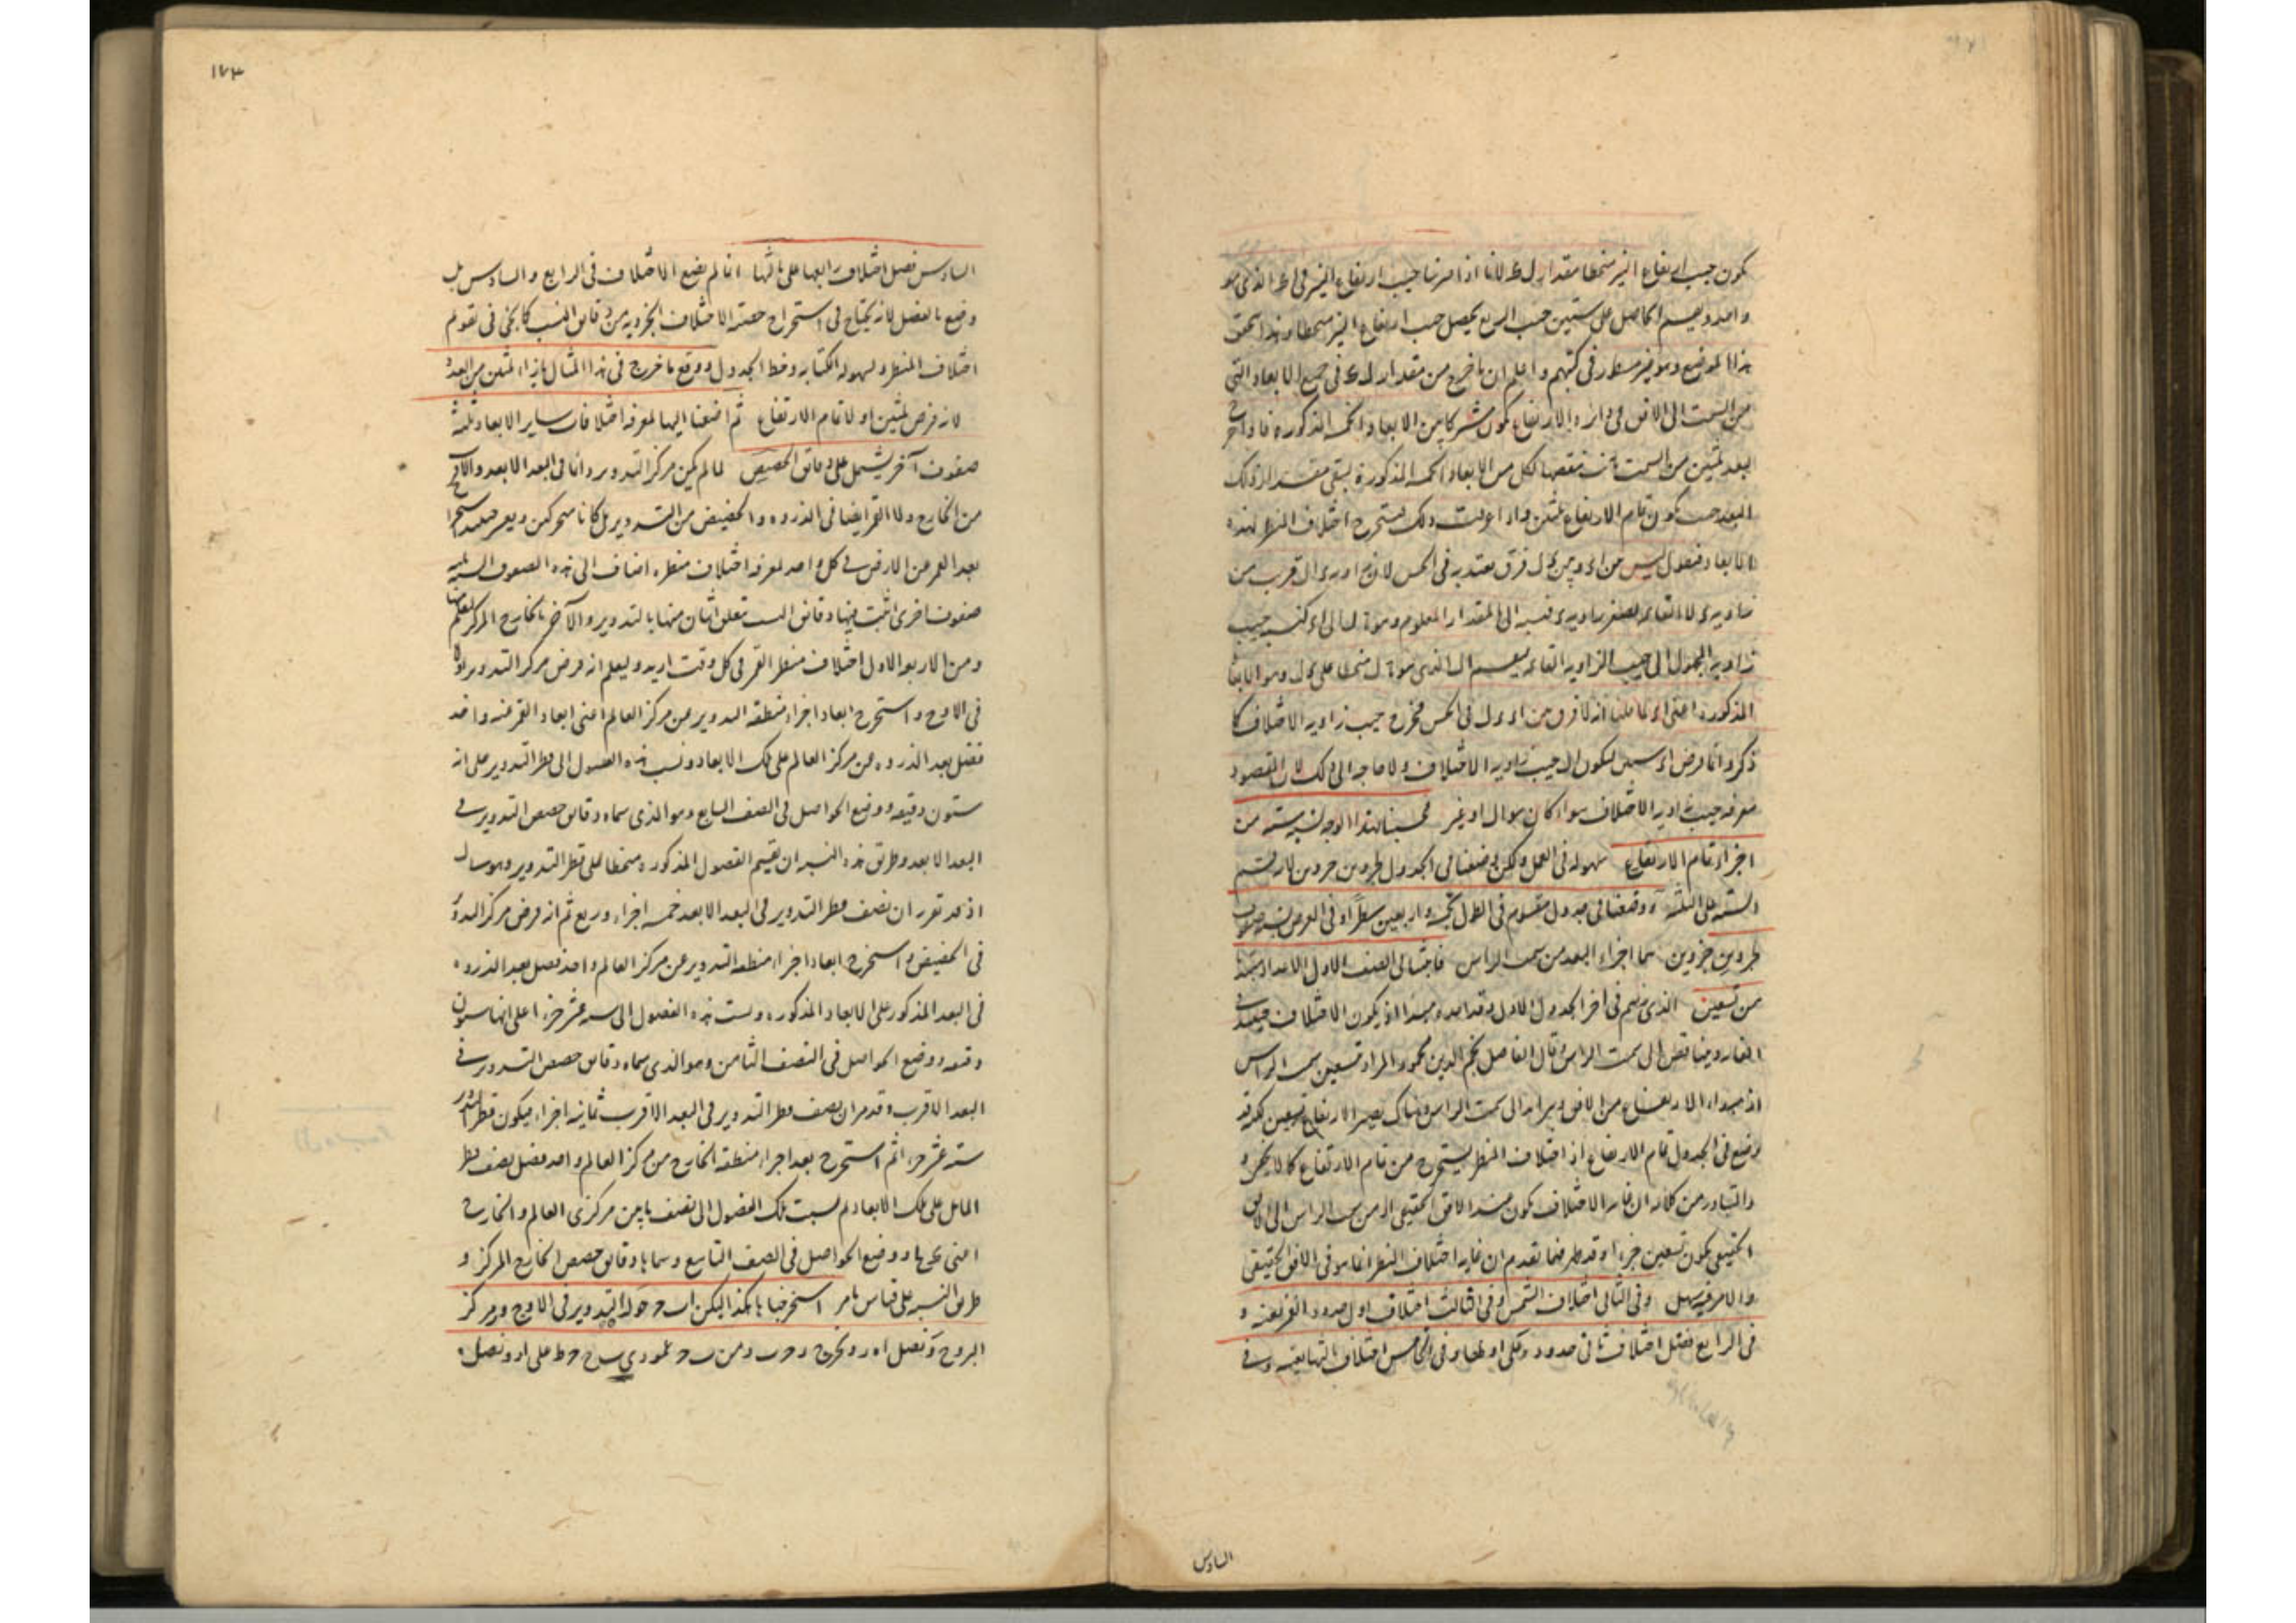 يكون جيب ارتفاع النير منحطا مقدار ل ط لانا اذا ضربنا جيب ارتفاع النير في اط الذي هو
واحد ويقسم الحاصل على ستين حسب السريع يحصل جيب ارتفاع النير منحطا وهذا تحقيق
هذا الموضع وهو غير مسطور في كتبهم واعلم ان ما خرج من مقدار ل ط في جميع الابعاد التي
من السمت الى الافق في دائرة الارتفاع يكون مشتركا بين الابعاد الخمسة المذكورة فاذا خرج
لبعد ثلثين من السمت ننقصها لكل من الابعاد الخمسة المذكورة يبقى مقدار ذلك
البعد حيث يكون تمام الارتفاع ثلثين واذا عرفت ذلك فنستخرج اختلاف المنظر لهذه
الابعاد فنقول ليس بين اى وبين ى ل فرق يعتد به في الحس لان اى ال قريب من
زاوية القائمة لصغر زاوية ى فنسبة ال المقدار المعلوم وهو الى اى كنسبة جيب
زاوية المجهول الى جيب الزاوية القائمة فيقسم ال الذي هو منحطا على ى ل وهو الابعاد
المذكورة اعني اى لما قلنا انه لا فرق بين اى وى ل في الحس فيخرج جيب زاوية الاختلاف كما
ذكر وانما فرض اى ستين ليكون ال جيب زاوية الاختلاف ولا حاجة الى ذلك لان المقصود
معرفة جيب زاوية الاختلاف سواء كان هو ال او غيره فحسبنا بهذا الوجه لستة ستة من
اجزاء تمام الارتفاع سهولة في العمل ولكن وضعنا في الجدول لجزوين جزوين لان قسم
الستة على الثلثة ووضعناه في جدول مقسوم في الطول بخمسة واربعين سطرا وفي العرض بتسعة صفوف
لجزوين جزوين هما اجزاء البعد من سمت الراس فاثبتنا في الصف الاول الاعداد مبتدا
من تسعين الذي رسم في اخر الجدول الاول وقدامه مبتدا اذ يكون الاختلاف حينئذ في
الغاية ويتناقص الى سمت الراس وقال الفاضل نجم الدين محمود المراد تسعين سمت الراس
اذ مبداء الارتفاع من الافق ويزايد الى سمت الراس وهناك يصير الارتفاع تسعين لكن قد
وضع في الجدول تمام الارتفاع اذ اختلاف المنظر يستخرج من تمام الارتفاع كما لا يخفى و
والمتبادر من كلامه ان غاية الاختلاف يكون عند الافق الحقيقي اذ من سمت الراس الى الافق
الحقيقي يكون تسعين جزءا وقد ظهر فيما تقدم ان غاية اختلاف المنظر انما هو في الافق الحقيقي
والامر فيه سهل وفي الثاني اختلاف الشمس وفي الثالث اختلاف اول حدود القمر بعينه و
في الرابع فضل اختلاف ثاني حدوده على اولها وفي الخامس اختلاف ثالثها بعينه وفي
السادس
١٧٣
السادس فضل اختلاف رابعها على ثالثها انما لم يضع الاختلاف في الرابع والسادس بل
وضع بالفضل لانه يحتاج في استخراج حصة الاختلاف الجزوية من دقايق النسب كما يجئ في تقويم
اختلاف المنظر ولسهولة الكتابة وخط الجدول ووقع ما خرج في هذا المثال بازاء الثلثين من العدد
لانه فرض ثلثين اولا تمام الارتفاع ثم اضفنا اليها لمعرفة اختلافات ساير الابعاد ثلثة
صفوف آخر يشتمل على دقايق الحصص لما لم يكن مركز التدوير دائما في البعد الابعد والاقرب
من الخارج ولا القمر ايضا في الذروة والحضيض من التدوير بل كانا متحركين ويعسر حينئذ استخراج
بعد القمر عن الارض في كل واحد لمعرفة اختلاف منظره اضاف الى هذه الصفوف الستة ثلثة
صفوف اخرى اثبت فيها دقائق النسب تعلق اثنان منها بالتدوير والآخر بالخارج المركز ليعلم منها
ومن الاربعة الاول اختلاف منظر القمر في كل وقت اريد وليعلم انه فرض مركز التدوير اولا
في الاوج واستخرج ابعاد اجزاء منطقة التدوير عن مركز العالم اعني ابعاد القمر عنه واخذ
فضل بعد الذروة عن مركز العالم على تلك الابعاد ونسب هذه الفضول الى قطر التدوير على انه
ستون دقيقة ووضع الحواصل في الصف السابع وهو الذي سماه دقايق حصص التدوير في
البعد الابعد وطريق هذه النسبة ان تقسم الفضول المذكورة منحطا على قطر التدوير وهو
اذ قد تقرر ان نصف قطر التدوير في البعد الابعد خمسة اجزاء وربع ثم انه فرض مركز التدوير
في الحضيض واستخرج ابعاد اجزاء منطقة التدوير عن مركز العالم واخذ فضل بعد الذروة
في البعد المذكور على الابعاد المذكورة ونسب هذه الفضول الى ستة عشر جزءا على انها ستون
دقيقة ووضع الحواصل في الصف الثامن وهو الذي سماه دقايق حصص التدوير في
البعد الاقرب وقد مر ان نصف قطر التدوير في البعد الاقرب ثمانية اجزاء فيكون قطر التدوير
ستة عشر جزءا ثم استخرج بعد اجزاء منطقة الخارج من مركز العالم واخذ فضل نصف قطر
المائل على تلك الابعاد ثم نسبت تلك الفضول الى نصف ما بين مركزي العالم والخارج
اعني ووضع الحواصل في الصف التاسع وسماها دقايق حصص الخارج المركز و
طريق النسبة على قياس ما مر استخرجناها هكذا ليكن ا ب ح حول التدوير في الاوج ود مركز
البروج ونصل ا د ر ونخرج د ح ب ومن ب ح عمودي ب ح ط على ا د ونصل